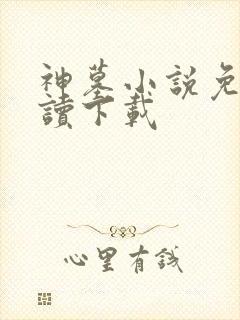 神墓小説免
讀下載
心里有錢